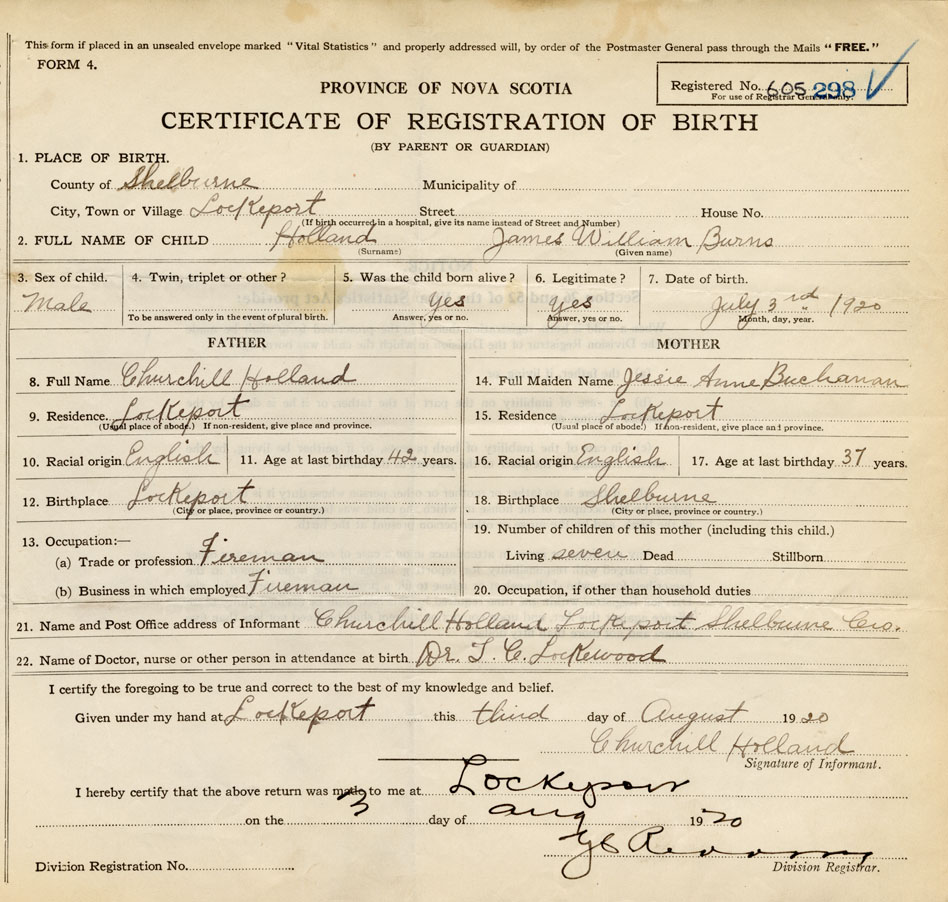 This form if placed in an unsealed envelope marked "Vital Statistics" and properly addressed will, by order of the Postmaster General pass through the Mails "FREE."
FORM 4.
Registered No. 605 298
For use of Registrar General only.
PROVINCE OF NOVA SCOTIA
CERTIFICATE OF REGISTRATION OF BIRTH
(BY PARENT OR GUARDIAN)
1. PLACE OF BIRTH.
County of Shelburne Municipality of
City, Town or Village Lockeport Street House No.
(If birth occurred in a hospital, give its name instead of Street and Number)
2. FULL NAME OF CHILD Holland James William Burns
(Surname) (Given name)
3. Sex of child. 4. Twin, triplet or other? 5. Was the child born alive? 6. Legitimate? 7. Date of birth.
Male Yes Yes July 3rd 1920
To be answered only in the event of plural birth. Answer, yes or no. Answer, yes or no. Month, day, year.
FATHER
8. Full Name Churchill Holland
9. Residence. Lockeport
(Usual place of abode.) If non-resident, give place and province.
10. Racial origin English 11. Age at last birthday 42 years.
12. Birthplace Lockeport
(City or place, province or country.)
13. Occupation:—
(a) Trade or profession Fireman
(b) Business in which employed Fireman
MOTHER
14. Full Maiden Name Jessie Anne Buchanan
15. Residence Lockeport
(Usual place of abode.) If non-resident, give place and province.
16. Racial origin English 17. Age at last birthday 37 years.
18. Birthplace Shelburne
(City or place, province or country.)
19. Number of children of this mother (including this child.)
Living seven Dead Stillborn
20. Occupation, if other than household duties
21. Name and Post Office address of Informant Churchill Holland Lockeport Shelburne Co.
22. Name of Doctor, nurse or other person in attendance at birth Dr. L. C. Lockewood
I certify the foregoing to be true and correct to the best of my knowledge and belief.
Given under my hand at Lockeport this third day of August 1920
Churchill Holland
Signature of Informant.
I hereby certify that the above return was made to me at Lockeport
on the 3 day of Aug 1920
Division Registration No. Division Registrar.